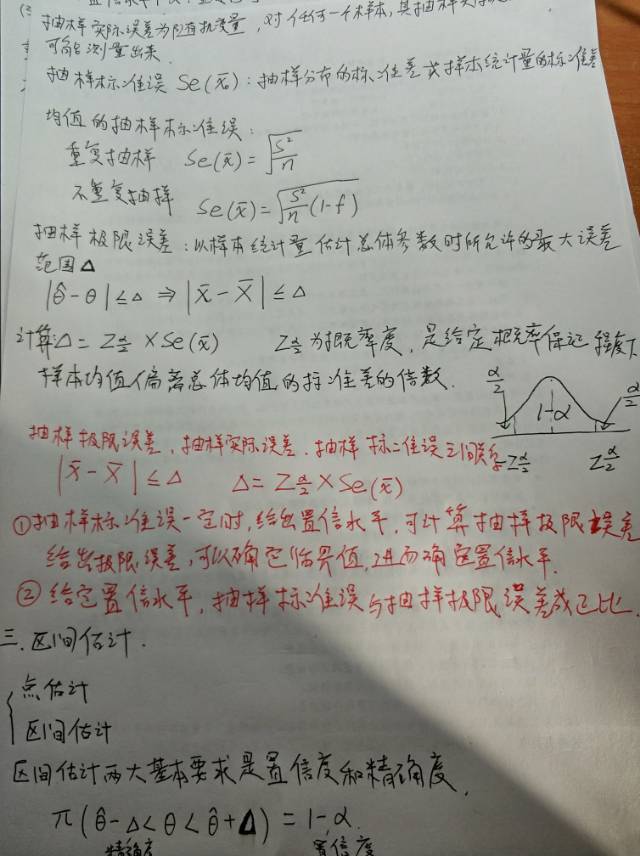 抽样实际误差为随机变量,对任何一个样本,其抽样实际
可能测量出来.
抽样标准误 Se(x̄):抽样分布的标准差或样本统计量的标准差
均值的抽样标准误:
重复抽样 Se(x̄)=√(S²/n)
不重复抽样 Se(x̄)=√(S²/n (1-f))
抽样极限误差:以样本统计量估计总体参数时所允许的最大误差
范围Δ
|θ̂-θ|≤Δ ⇒ |x̄-X̄|≤Δ
计算:Δ=Zα/2×Se(x̄) Zα/2为概率度,是给定概率保证程度下
样本均值偏离总体均值的标准差的倍数.
α/2 1-α α/2
-Zα/2 Zα/2
抽样极限误差,抽样实际误差.抽样标准误三间关系
|x̄-X̄|≤Δ Δ=Zα/2×Se(x̄)
①抽样标准误一定时,给出置信水平,可计算抽样极限误差
给出极限误差,可以确定临界值,进而确定置信水平.
②给定置信水平,抽样标准误与抽样极限误差成正比.
三.区间估计.
点估计
区间估计
区间估计两大基本要求是置信度和精确度.
π(θ̂-Δ<θ<θ̂+Δ)=1-α.
精确度 置信度